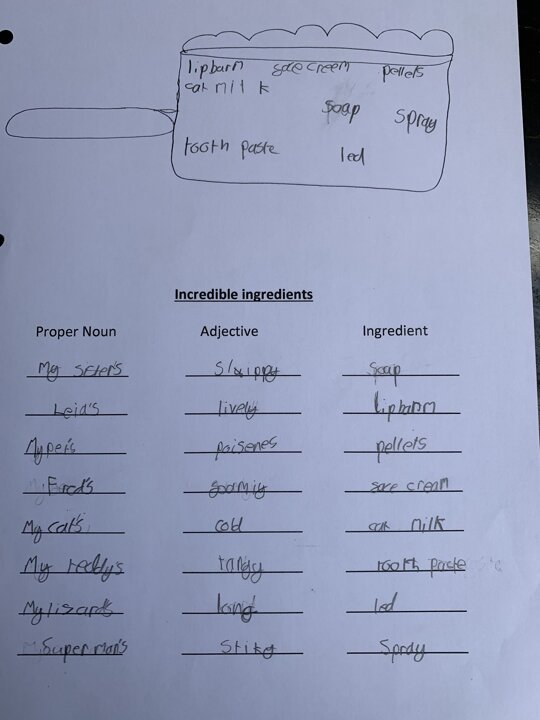 lipbarm sore creem pellets
cat milk
soap
spray
tooth paste
led
Incredible ingredients
Proper Noun Adjective Ingredient
My Sister's slxippy soap
Leia's lively lipbarm
My pet's poisenes pellets
Fred's foamiy sore cream
My cat's cold cat milk
My teddy's tangy tooth paste
My lizard's long led
Superman's stikey Spray